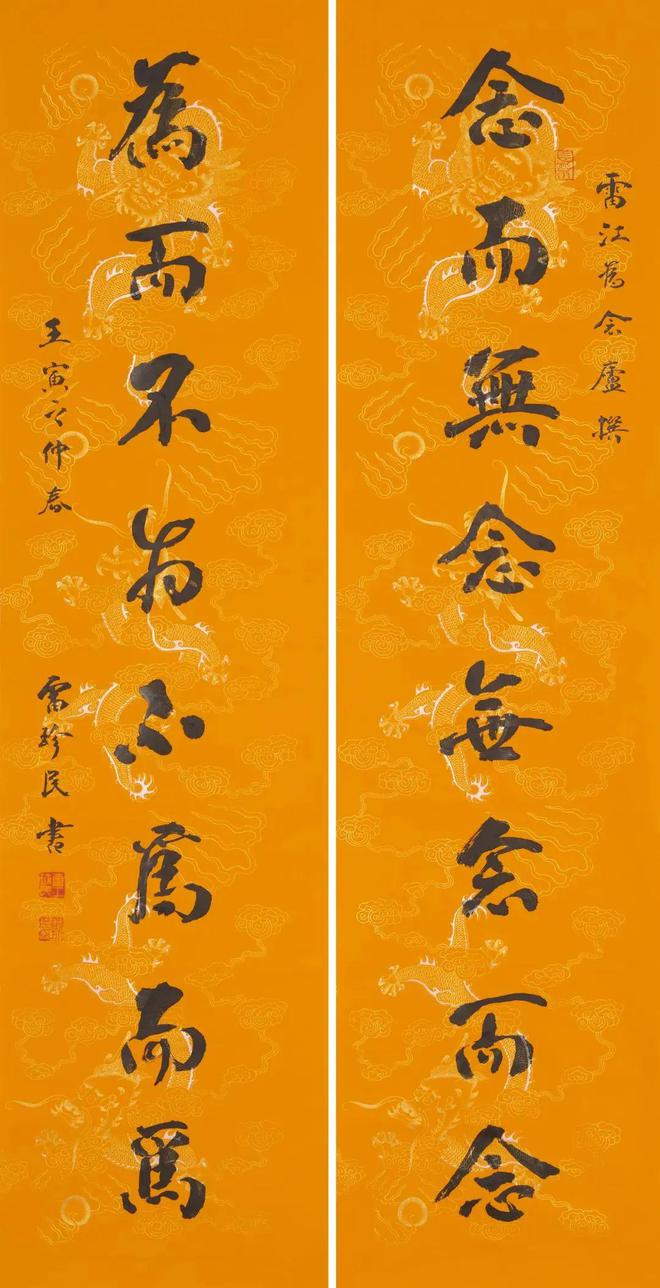 雷江為念廬撰
念而無念無念而念
為而不為不為而為
壬寅之仲春雷珍民書